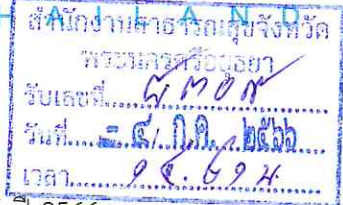 A I L A N D
สำนักงานสาธารณสุขจังหวัด
พระนครศรีอยุธยา
รับเลขที่
วันที่ - ๔ ก.ค. ๒๕๖๖
เวลา
ปี 2566